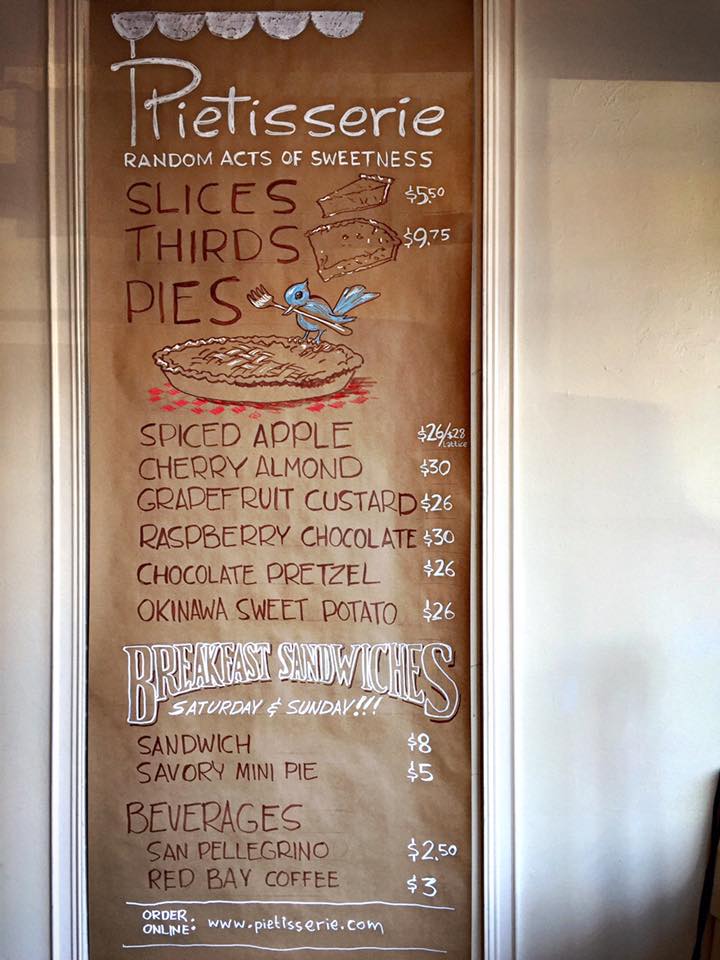 Pietisserie
RANDOM ACTS OF SWEETNESS
SLICES $5.50
THIRDS $9.75
PIES
SPICED APPLE $26/$28 Lattice
CHERRY ALMOND $30
GRAPEFRUIT CUSTARD $26
RASPBERRY CHOCOLATE $30
CHOCOLATE PRETZEL $26
OKINAWA SWEET POTATO $26
BREAKFAST SANDWICHES
SATURDAY & SUNDAY!!!
SANDWICH $8
SAVORY MINI PIE $5
BEVERAGES
SAN PELLEGRINO $2.50
RED BAY COFFEE $3
ORDER ONLINE: www.pietisserie.com